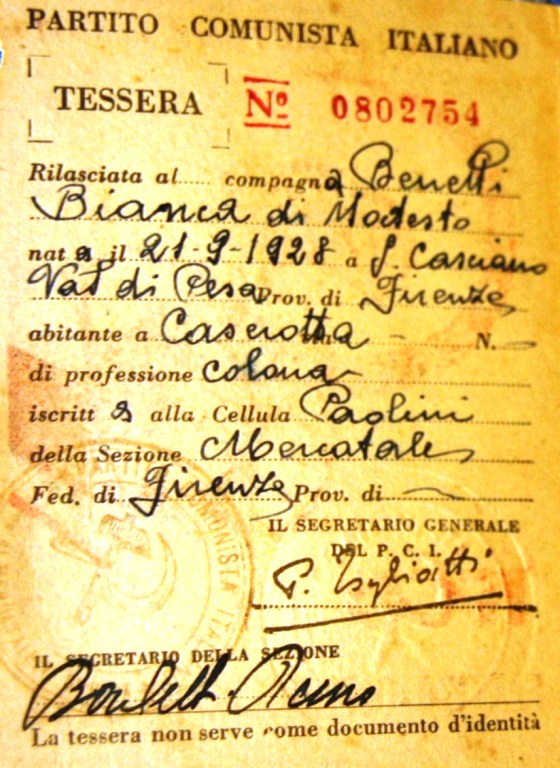 PARTITO COMUNISTA ITALIANO
TESSERA Nº 0802754
Rilasciata al..... compagna Benetti
Bianca di Modesto
nata il 21-9-1928 a S. Casciano
Val di Pesa Prov. di Firenze
abitante a Casciotta - N. -
di professione colona
iscritta alla Cellula Paolini
della Sezione Mercatale
Fed. di Firenze Prov. di
IL SEGRETARIO GENERALE
DEL P. C. I.
P. Togliatti
IL SEGRETARIO DELLA SEZIONE
La tessera non serve come documento d'identità